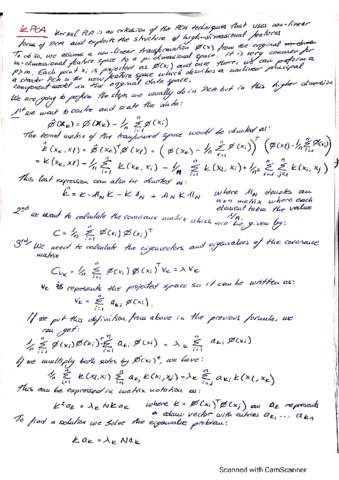 k PCA Kernel PCA is an extension of the PCA techniques that uses non-linear
form of PCA and exploits the structure of high-dimensional features
To do so, we assume a non-linear transformation ∅(x) from the original
m-dimensional feature space to a p-dimensional space. It is very common for
p>>m. Each point xi is projected as ∅(xi) and once there, we can perform a
standar PCA in the new feature space which describes a nonlinear principal
component model in the original data space.
We are going to perform the steps we usually do in PCA but in this higher dimension
1st we want to center and scale the data:
∅̃(xk) = ∅(xk) - 1/n Σ ∅(xi)
The kernel matrix of the transformed space would be denoted as:
k̃(xk, xl) = ∅̃(xk)ᵀ ∅̃(xl) = (∅(xk) - 1/n Σ ∅(xi))ᵀ (∅(xl) - 1/n Σ ∅(xi))
= k(xk, xl) - 1/n Σ k(xk, xi) - 1/n Σ k(xl, xi) + 1/n² Σ Σ k(xi, xj)
This last expression can also be denoted as:
K̃ = K - 1N K - K 1N + 1N K 1N where 1N denotes an
nxn matrix where each
element takes the value
1/n.
2nd we want to calculate the covariance matrix which will be given by:
C = 1/n Σ ∅(xi) ∅(xi)ᵀ
3rd We need to calculate the eigenvectors and eigenvalues of the covariance
matrix
C vk = 1/n Σ ∅(xi) ∅(xi)ᵀ vk = λ vk
vk represents the projected space so it can be written as:
vk = Σ aki ∅(xi)
If we put this definition from above in the previous formula, we
can get:
1/n Σ ∅(xi) ∅(xi)ᵀ Σ aki ∅(xi) = λk Σ aki ∅(xi)
If we multiply both sides by ∅(xi)ᵀ, we have:
1/n Σ k(xl, xi) Σ aki k(xi, xj) = λk Σ aki k(xl, xk)
This can be expressed in matrix notation as:
K² ak = λk N K ak where K = ∅(xi)ᵀ ∅(xj) and ak represents
a column vector with entries ak1 ... akn
To find a solution we solve the eigenvalue problem:
K ak = λk N ak
Scanned with CamScanner